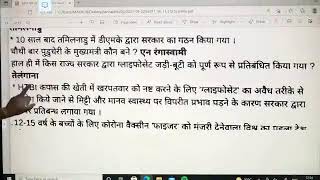 तमिलनाडु
* 10 साल बाद तमिलनाडु में डीएमके द्वारा सरकार का गठन किया गया ।
चौथी बार पुडुचेरी के मुख्यमंत्री कौन बने ? एन रंगास्वामी
हाल ही में किस राज्य सरकार द्वारा ग्लाइफोसेट जड़ी-बूटी को पूर्ण रूप से प्रतिबंधित किया गया ?
तेलंगाना
* HTBt कपास की खेती में खरपतवार को नष्ट करने के लिए 'ग्लाइफोसेट' का अवैध तरीके से
किये जाने से मिट्टी और मानव स्वास्थ्य पर विपरीत प्रभाव पड़ने के कारण सरकार द्वारा
पर प्रतिबन्ध लगाया गया ।
12-15 वर्ष के बच्चों के लिए कोरोना वैक्सीन 'फाइजर' को मंजूरी देनेवाला विश्व का पहला देश